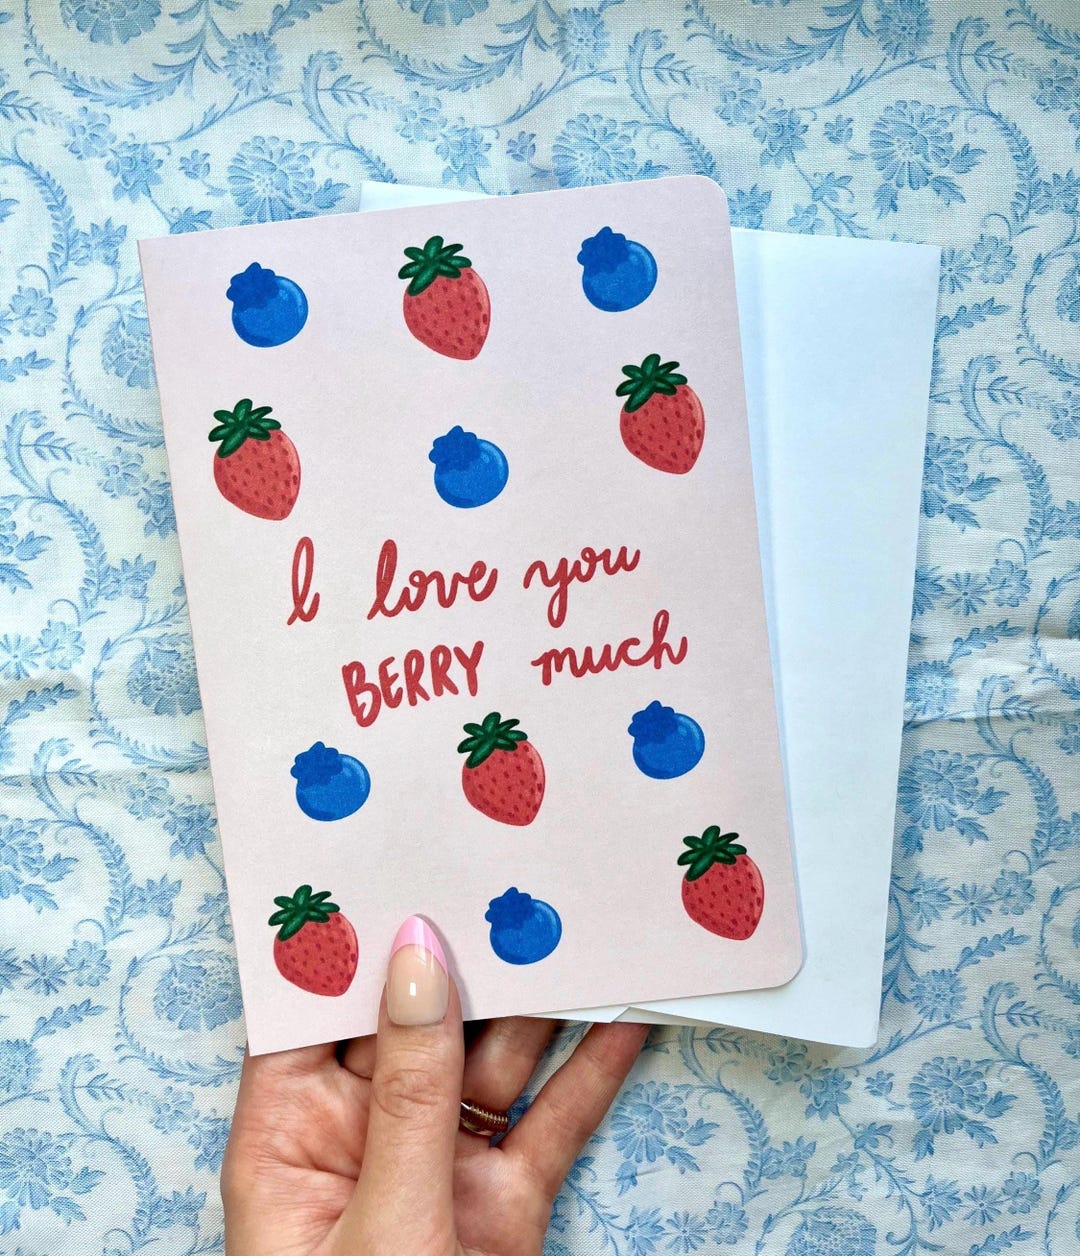 I love you
BERRY much